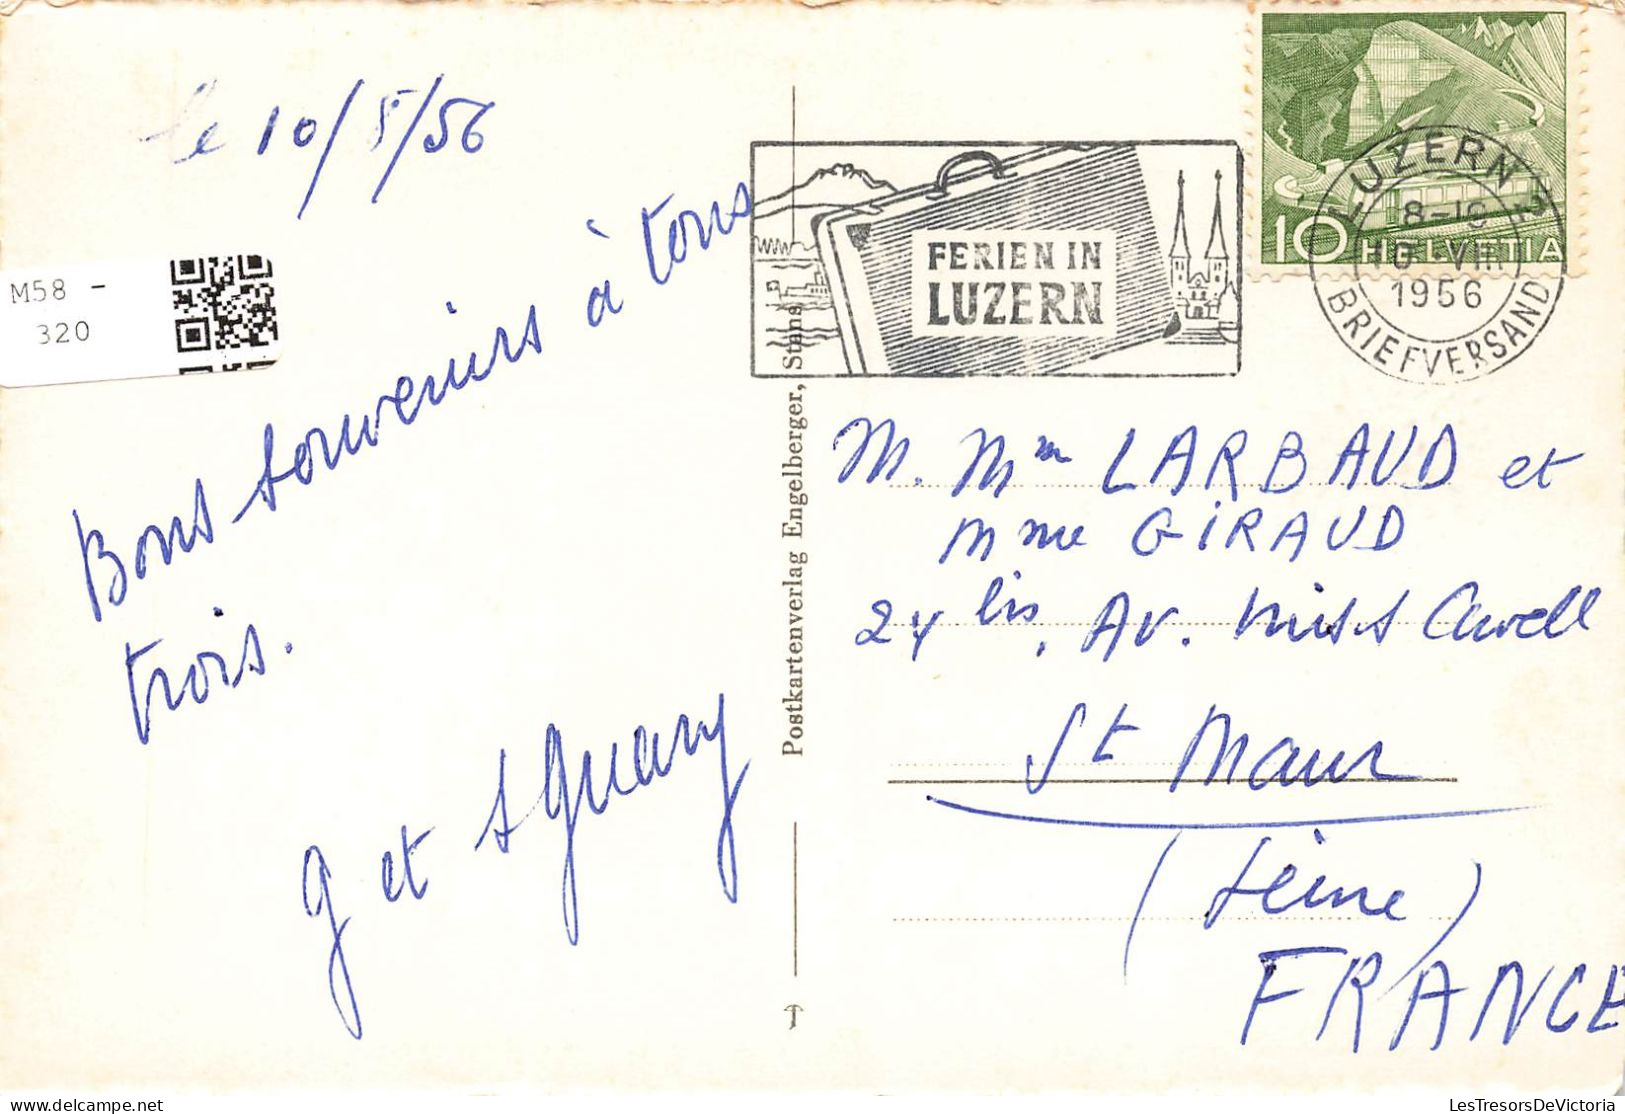 le 10/8/56
Bons souvenirs à tous
trois.
g et
M58 -
320
Postkartenverlag Engelberger, Stans
FERIEN IN
LUZERN
10 HELVETIA
LUZERN 2
8-10
10.VIII
1956
BRIEFVERSAND
M. Mme LARBAUD et
Mme GIRAUD
24 bis, Av. Miss Cavell
St Maur
(Seine)
FRANCE
LesTresorsDeVictoria